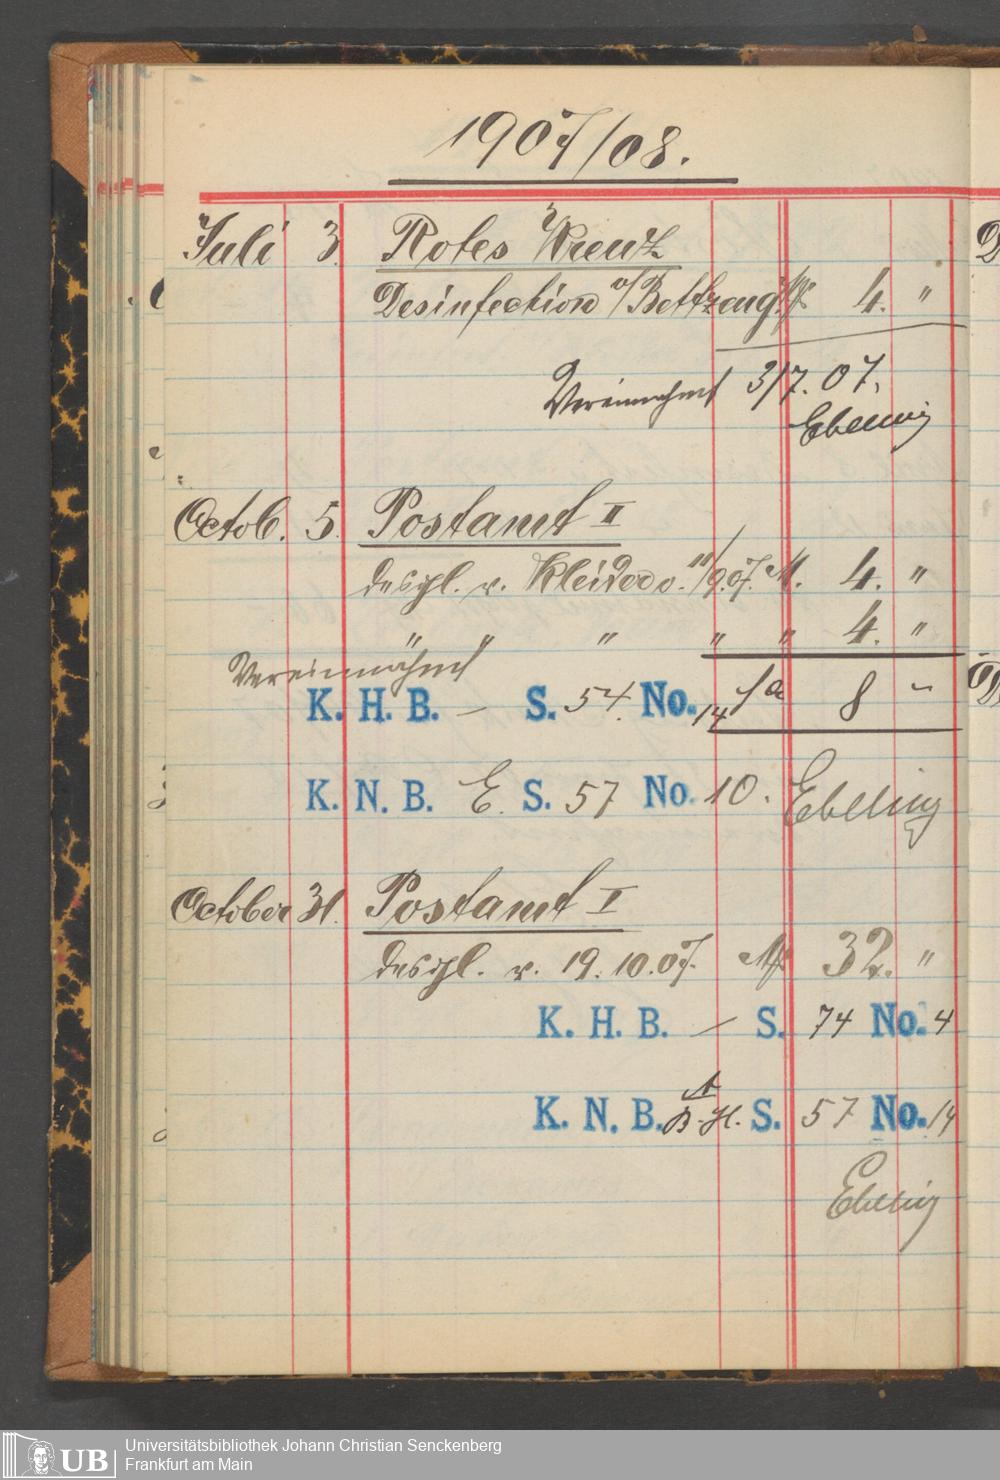 1907/08.
Juli 3. Rotes Kreuz
Desinfection v/Bettzeug M 4. "
Vereinnahmt 3/7.07.
Ebeling
Octob. 5. Postamt II
desgl. v. Kleider v. 11/9.07. M. 4. "
" " " " " 4. "
Vereinnahmt
K. H. B. — S. 54. No. 14 Sa 8 -
K. N. B. E. S. 57 No. 10. Ebeling
October 31. Postamt I
desgl. v. 19.10.07. M 32. "
K. H. B. — S. 74 No. 4
A
K. N. B. B.H. S. 57 No. 14
Ebeling
UB Universitätsbibliothek Johann Christian Senckenberg
Frankfurt am Main